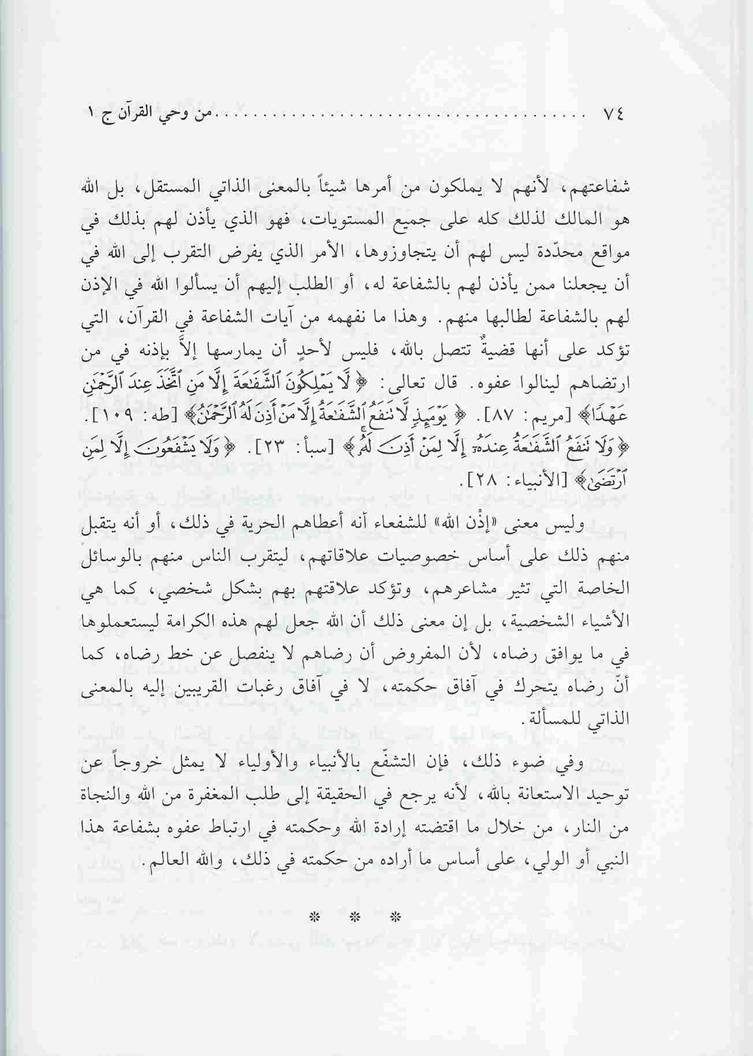 ٧٤ ....................................... من وحي القرآن ج ١
شفاعتهم، لأنهم لا يملكون من أمرها شيئاً بالمعنى الذاتي المستقل، بل الله
هو المالك لذلك كله على جميع المستويات، فهو الذي يأذن لهم بذلك في
مواقع محدّدة ليس لهم أن يتجاوزوها، الأمر الذي يفرض التقرب إلى الله في
أن يجعلنا ممن يأذن لهم بالشفاعة له، أو الطلب إليهم أن يسألوا الله في الإذن
لهم بالشفاعة لطالبها منهم. وهذا ما نفهمه من آيات الشفاعة في القرآن، التي
تؤكد على أنها قضيةٌ تتصل بالله، فليس لأحدٍ أن يمارسها إلاَّ بإذنه في من
ارتضاهم لينالوا عفوه. قال تعالى: ﴿لَا يَمْلِكُونَ ٱلشَّفَـٰعَةَ إِلَّا مَنِ ٱتَّخَذَ عِندَ ٱلرَّحْمَـٰنِ
عَهْدًا﴾ [مريم: ٨٧]. ﴿يَوْمَئِذٍ لَّا تَنفَعُ ٱلشَّفَـٰعَةُ إِلَّا مَنْ أَذِنَ لَهُ ٱلرَّحْمَـٰنُ﴾ [طه: ١٠٩].
﴿وَلَا تَنفَعُ ٱلشَّفَـٰعَةُ عِندَهُۥٓ إِلَّا لِمَنْ أَذِنَ لَهُۥ﴾ [سبأ: ٢٣]. ﴿وَلَا يَشْفَعُونَ إِلَّا لِمَنِ
ٱرْتَضَىٰ﴾ [الأنبياء: ٢٨].
وليس معنى «إذْن الله» للشفعاء أنه أعطاهم الحرية في ذلك، أو أنه يتقبل
منهم ذلك على أساس خصوصيات علاقاتهم، ليتقرب الناس منهم بالوسائل
الخاصة التي تثير مشاعرهم، وتؤكد علاقتهم بهم بشكل شخصي، كما هي
الأشياء الشخصية، بل إن معنى ذلك أن الله جعل لهم هذه الكرامة ليستعملوها
في ما يوافق رضاه، لأن المفروض أن رضاهم لا ينفصل عن خط رضاه، كما
أنّ رضاه يتحرك في آفاق حكمته، لا في آفاق رغبات القريبين إليه بالمعنى
الذاتي للمسألة.
وفي ضوء ذلك، فإن التشفّع بالأنبياء والأولياء لا يمثل خروجاً عن
توحيد الاستعانة بالله، لأنه يرجع في الحقيقة إلى طلب المغفرة من الله والنجاة
من النار، من خلال ما اقتضته إرادة الله وحكمته في ارتباط عفوه بشفاعة هذا
النبي أو الولي، على أساس ما أراده من حكمته في ذلك، والله العالم.
* * *